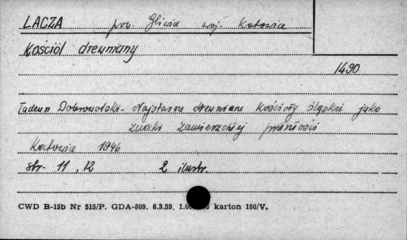 ŁĄCZA pow. Gliwice woj. Katowice
Kościół drewniany
1490
Tadeusz Dobrowolski - Najstarsze drewniane Kościoły Śląskie jako
znaki zamierzchłej przeszłości
Katowice 1946
str. 11, 12 2 ilustr.
CWD B-15b Nr 515/P. GDA-809, 6.3.59, karton 180/V.